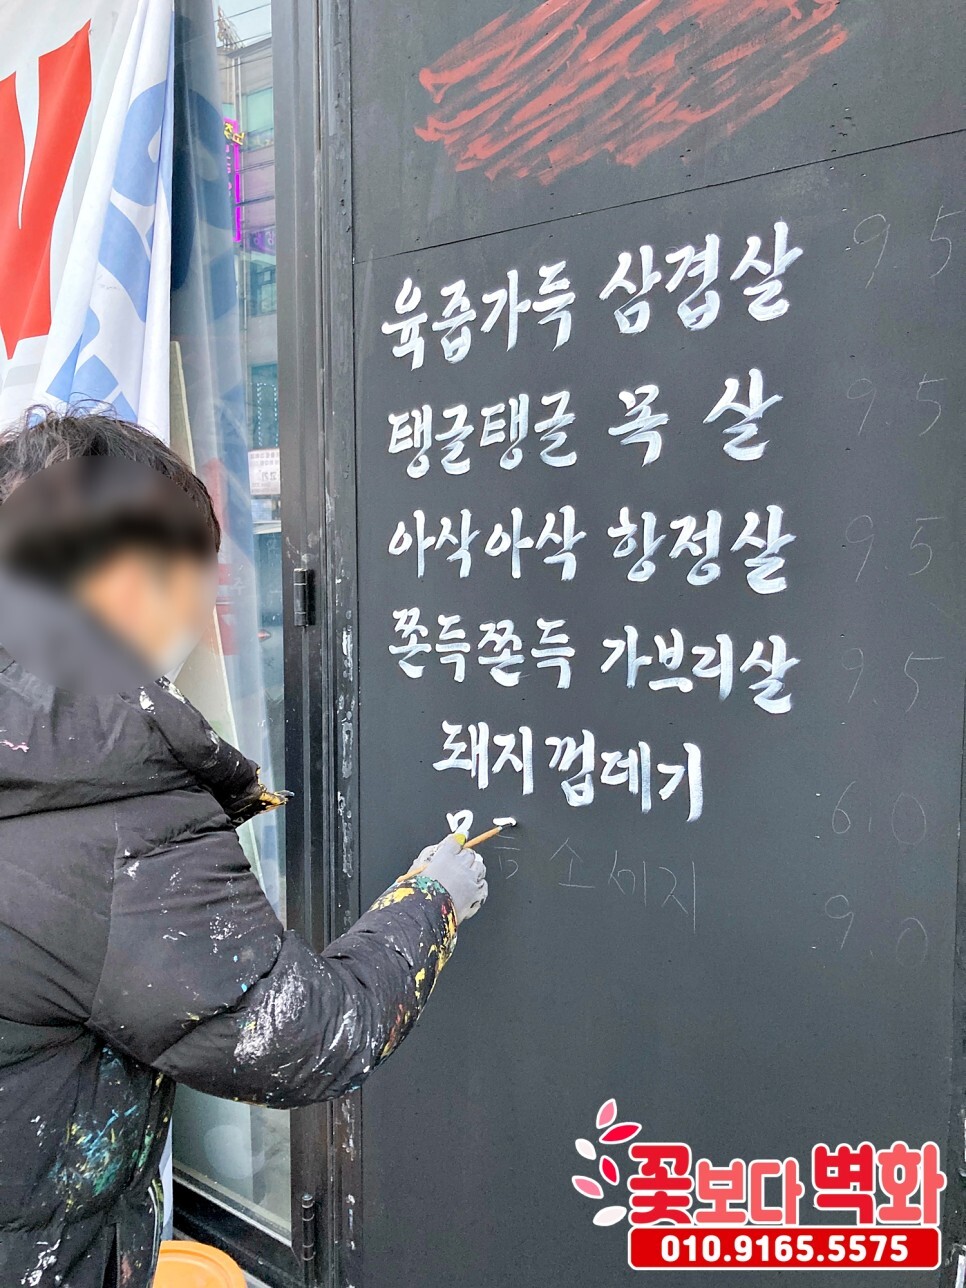 육즙가득 삼겹살 9.5
탱글탱글 목살 9.5
아삭아삭 항정살 9.5
쫀득쫀득 가브리살 9.5
돼지껍데기 6.0
소세지 9.0
꽃보다 벽화
010.9165.5575